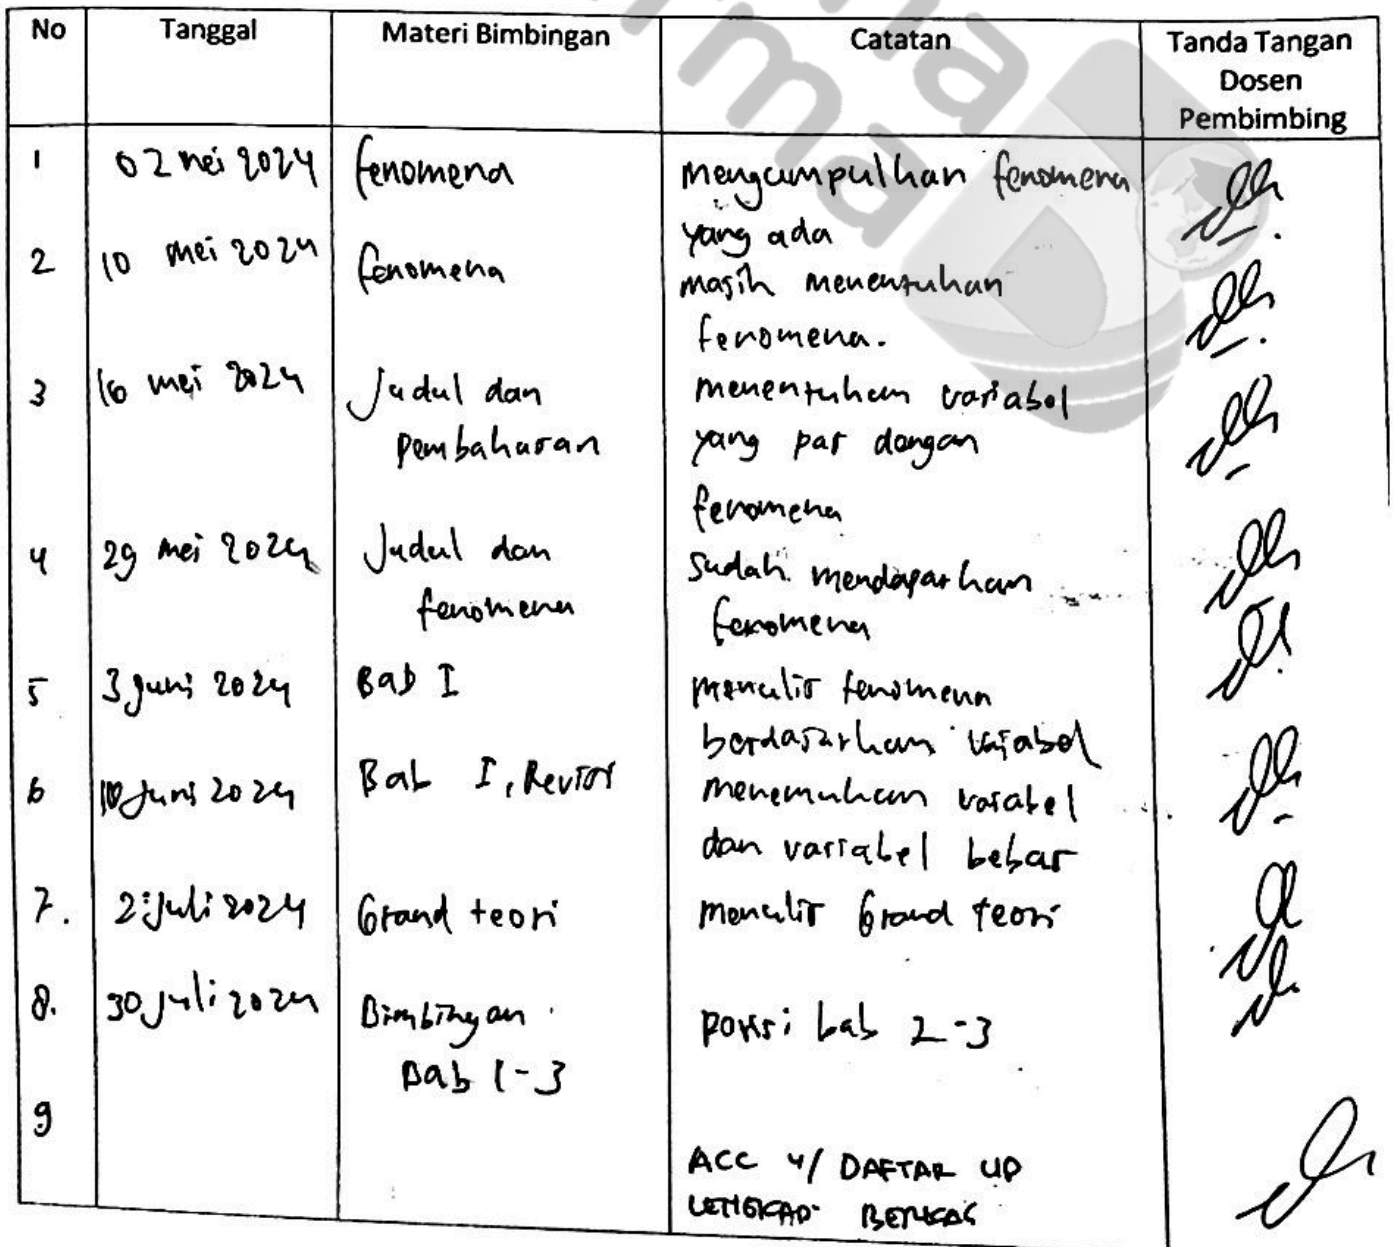 No Tanggal Materi Bimbingan Catatan Tanda Tangan
Dosen
Pembimbing
1 02 mei 2024 fenomena mengumpulkan fenomena
yang ada
2 10 mei 2024 fenomena masih menentukan
fenomena.
3 16 mei 2024 Judul dan menentukan variabel
pembahasan yang pas dengan
fenomena
4 29 mei 2024 Judul dan sudah mendapatkan
fenomena fenomena
5 3 Juni 2024 Bab I menulis fenomena
berdasarkan variabel
6 10 Juni 2024 Bab I, Revisi menemukan variabel
dan variabel bebas
7. 2 Juli 2024 Grand teori menulis Grand teori
8. 30 Juli 2024 Bimbingan revisi bab 2-3
Bab 1-3
9
ACC u/ DAFTAR UP
LENGKAP BERKAS